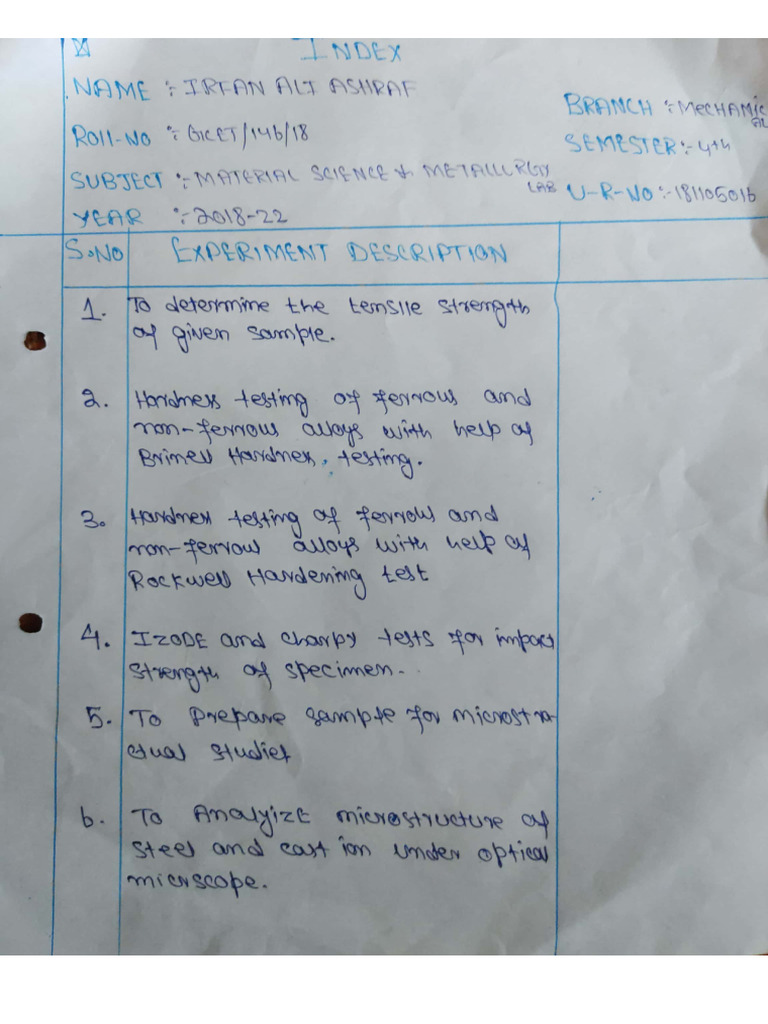 INDEX
NAME :- IRFAN ALI ASHRAF
BRANCH :- MECHANICAL
ROll-NO :- GICET/146/18
SEMESTER:- 4th
SUBJECT :- MATERIAL SCIENCE & METALLURGY LAB
U-R-NO :- 181105016
YEAR :- 2018-22
S.NO EXPERIMENT DESCRIPTION
1. To determine the tensile strength
of given sample.
2. Hardness testing of ferrous and
non-ferrous alloys with help of
Brinell Hardness testing.
3. Hardness testing of ferrous and
non-ferrous alloys with help of
Rockwell Hardening test
4. IZODE and charpy tests for impact
strength of specimen.
5. To Prepare sample for microstru-
ctual studies
6. To AnalyizE microstructure of
steel and cast ion under optical
micrscope.